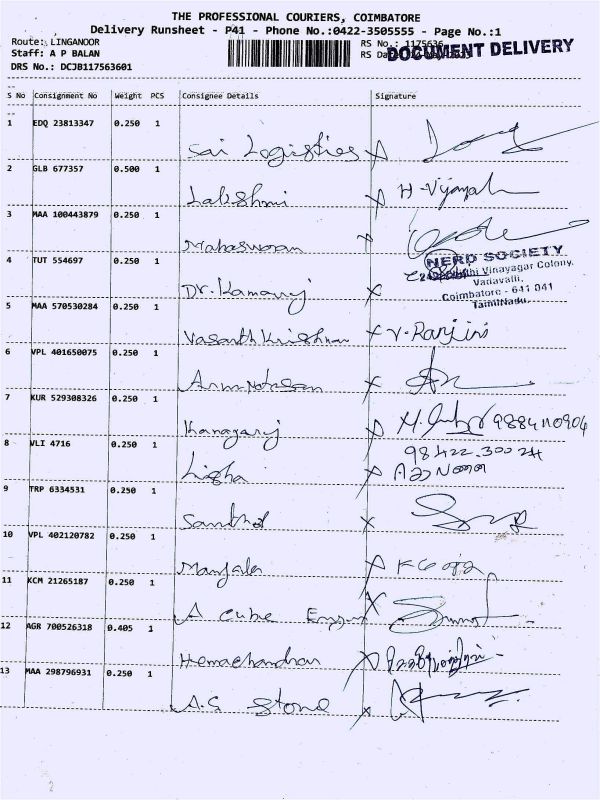 THE PROFESSIONAL COURIERS, COIMBATORE
Delivery Runsheet - P41 - Phone No.:0422-3505555 - Page No.:1
Route: LINGANOOR
RS No.: 1175636
Staff: A P BALAN
RS Da
DOCUMENT DELIVERY
DRS No.: DCJB117563601
S No Consignment No Weight PCS Consignee Details Signature
1 EDQ 23813347 0.250 1
Sai Logistics
2 GLB 677357 0.500 1
Lakshmi H-Vijayal
3 MAA 100443879 0.250 1
Mahaswaran
NERD SOCIETY
4 TUT 554697 0.250 1
Vinayagar Colony,
Vadavalli,
Dr. Kamaraj
Coimbatore - 641 041
TamilNadu.
5 MAA 570530284 0.250 1
Vasanth Krishnan V. Ranjini
6 VPL 401650075 0.250 1
Arun Natesan
7 KUR 529308326 0.250 1
Kanagaraj 9884110904
8 VLI 4716 0.250 1
98422-300 24
Ligha
9 TRP 6334531 0.250 1
Santhol
10 VPL 402120782 0.250 1
Manjala
11 KCM 21265187 0.250 1
A Cube
12 AGR 700526318 0.405 1
Hemachandran
13 MAA 298796931 0.250 1
A.G Stone